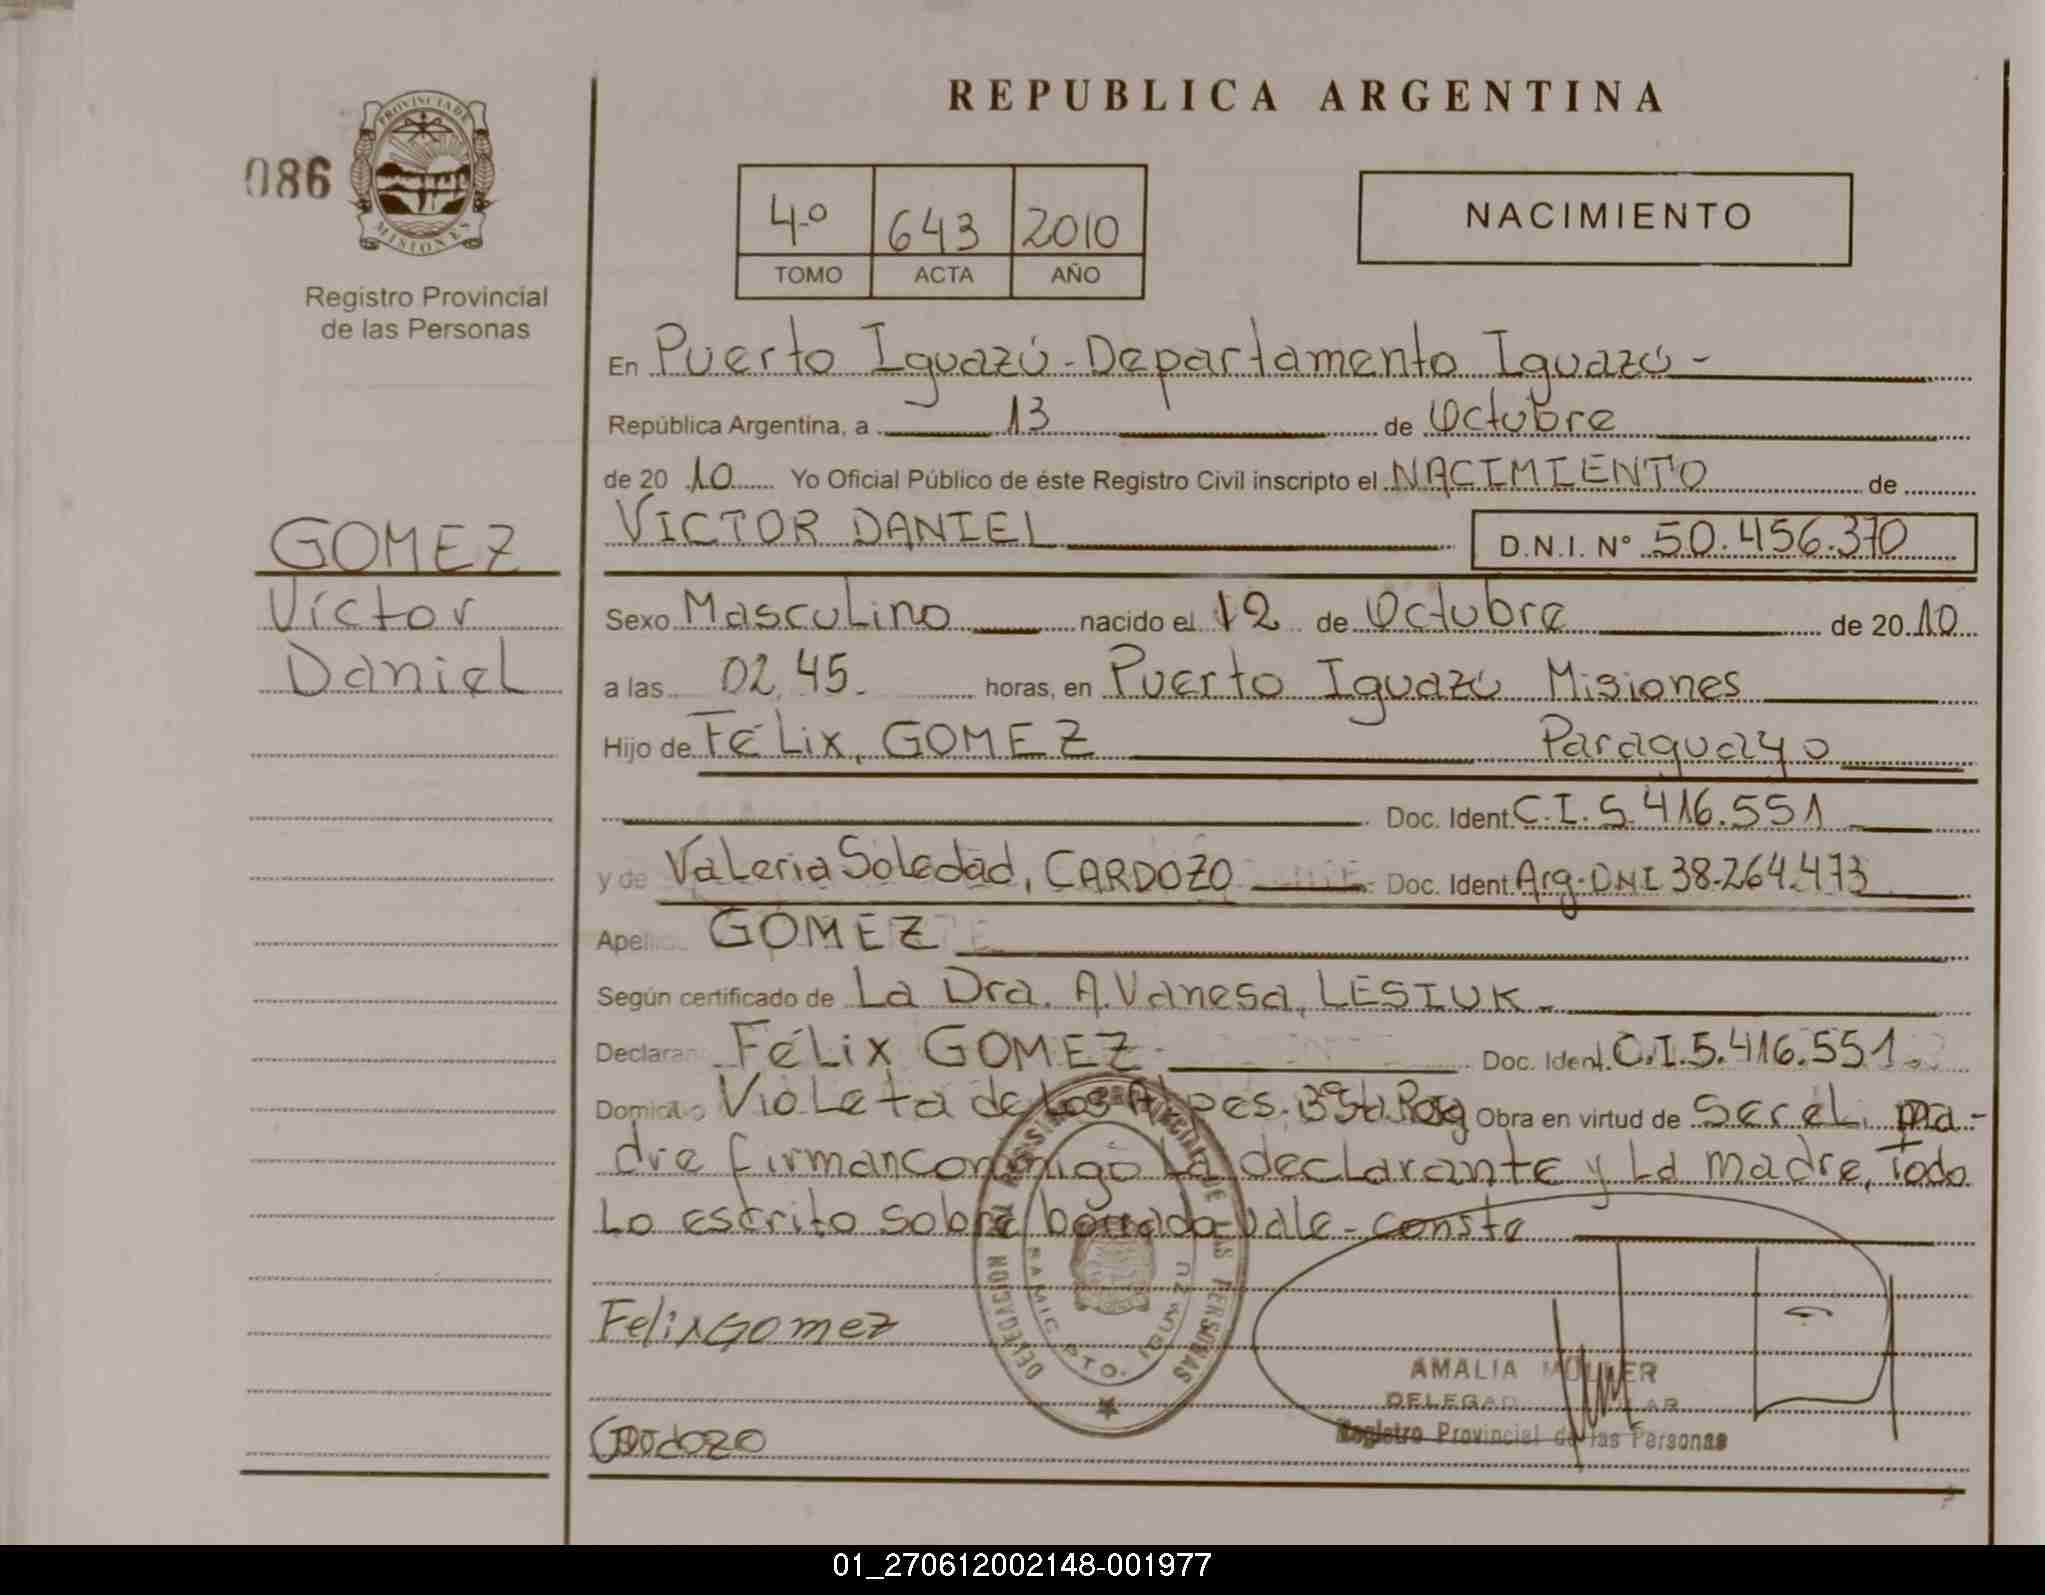 REPUBLICA ARGENTINA
086
PROVINCIA DE
MISIONES
Registro Provincial
de las Personas
4º 643 2010
TOMO ACTA AÑO
NACIMIENTO
En Puerto Iguazú - Departamento Iguazú -
República Argentina, a 13 de Octubre
de 20 10 Yo Oficial Público de éste Registro Civil inscripto el NACIMIENTO de
VICTOR DANIEL D.N.I. Nº 50.456.370
GOMEZ
Víctor
Daniel
Sexo Masculino nacido el 12 de Octubre de 20 10
a las 02,45. horas, en Puerto Iguazú Misiones
Hijo de Félix, GOMEZ Paraguayo
Doc. Ident. C.I. 5.416.551
y de Valeria Soledad, CARDOZO Doc. Ident. Arg. DNI 38.264.473
Apel GOMEZ
Según certificado de La Dra. A. Vanesa, LESIUK -
Declaran Félix GOMEZ - Doc. Ident. C.I. 5.416.551.
Domicilio Violeta de Los Alpes. Obra en virtud de Ser el, ma-
dre firman conmigo La declarante y La madre, Todo
Lo escrito sobre borrado - vale - conste
Felix Gomez
DELEGACION REGISTRO PROVINCIAL DE LAS PERSONAS
SAMIC PTO. IGUAZU
AMALIA MULLER
DELEGAD
Registro Provincial de las Personas
Cardozo
01_270612002148-001977